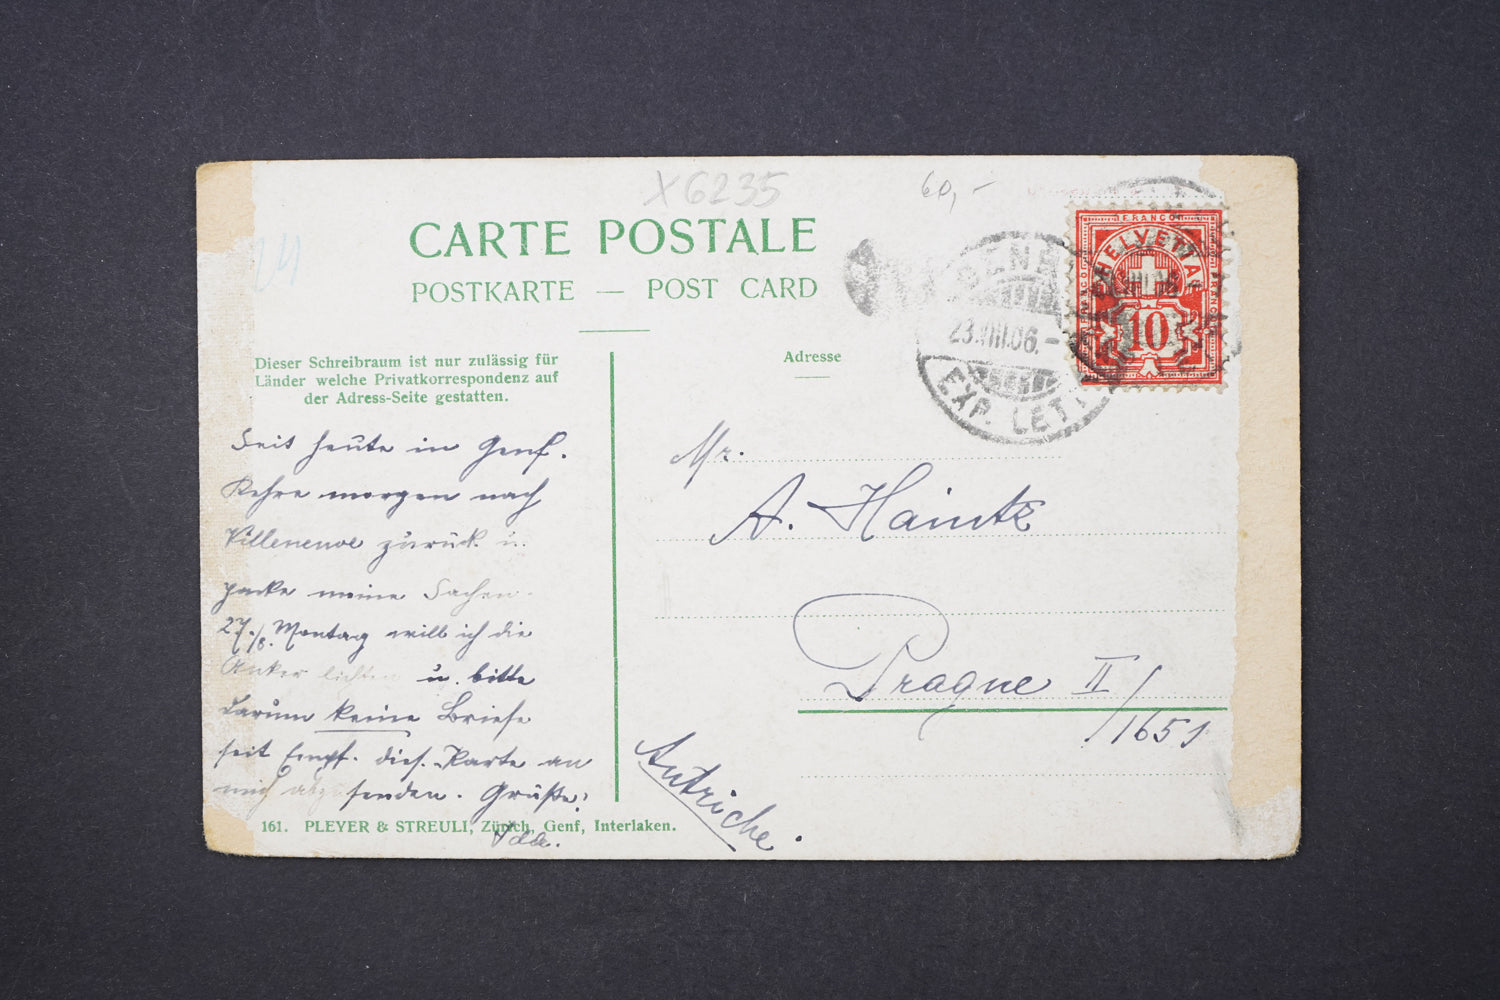 X 6235
60,-
24
CARTE POSTALE
POSTKARTE — POST CARD
Dieser Schreibraum ist nur zulässig für
Länder welche Privatkorrespondenz auf
der Adress-Seite gestatten.
Adresse
FRANCO
HELVETIA
10
23.VIII.06.-
EXP. LETT
Seit heute in Genf.
Kehre morgen nach
Villeneuve zurück u.
packe meine Sachen.
27./8. Montag will ich die
Anker lichten u. bitte
darum keine Briefe
seit Empf. dies. Karte an
mich abzusenden. Grüße!
Mr.
A. Haintz
Prague II/
1651
Autriche.
161. PLEYER & STREULI, Zürich, Genf, Interlaken.